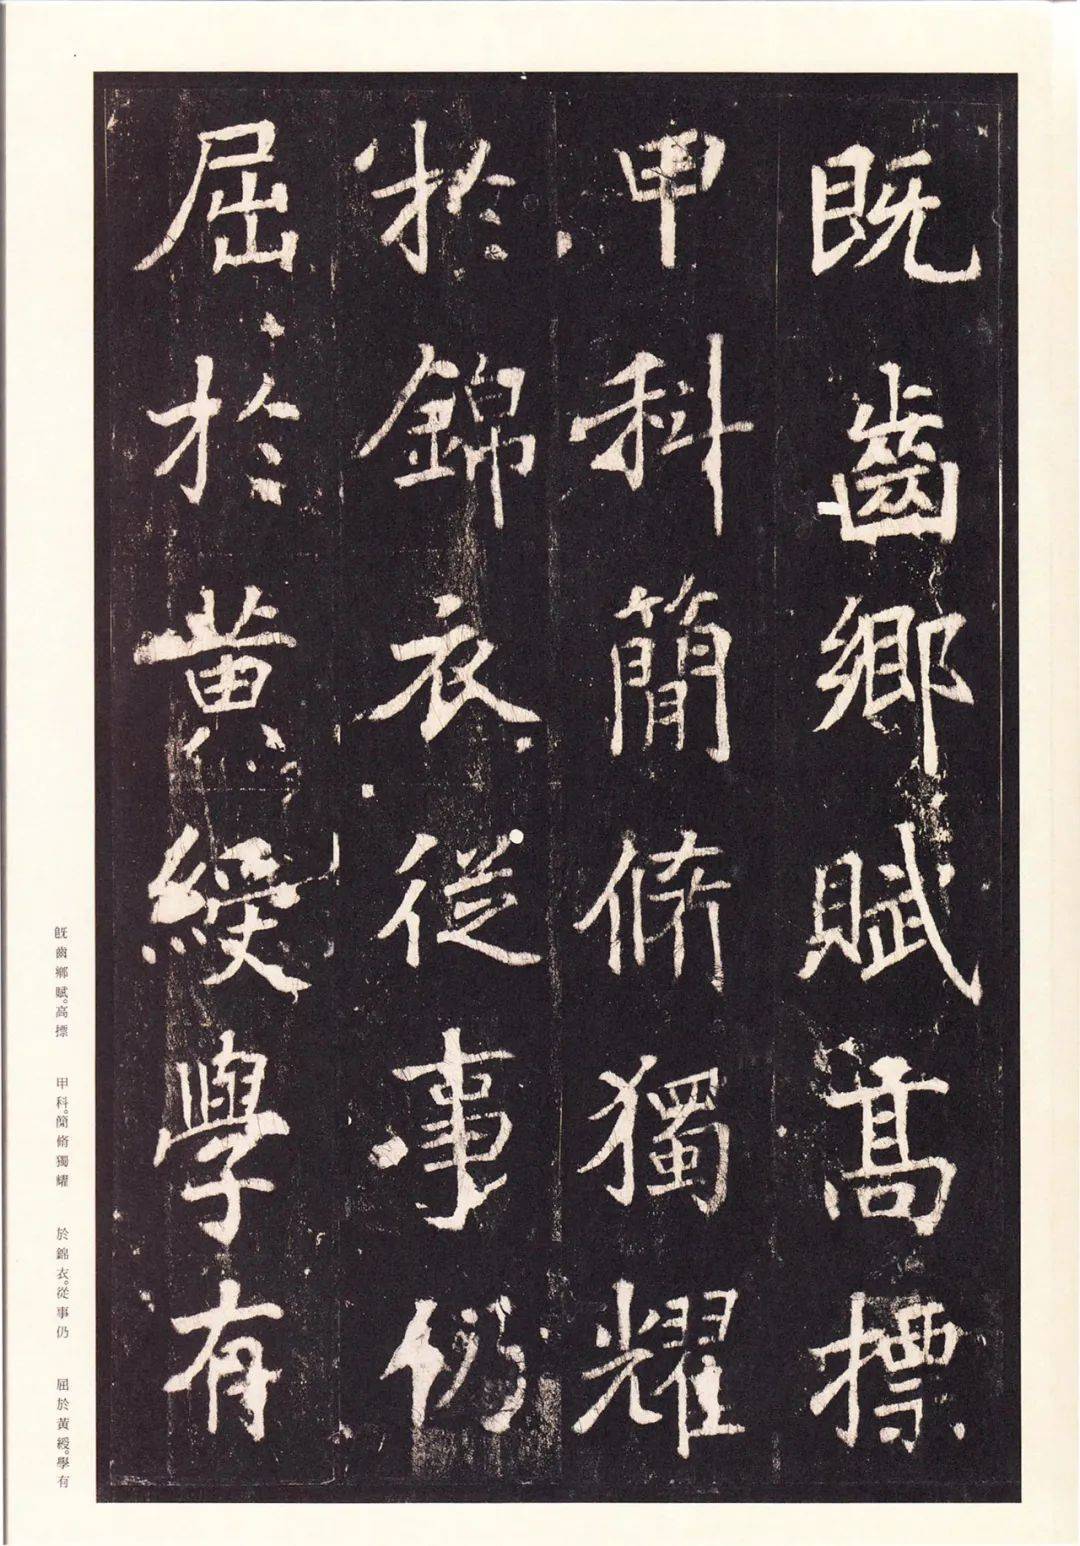 既齒鄉賦高摽
甲科簡脩獨耀
於錦衣從事仍
屈於黃綬學有
既齒鄉賦。高摽　甲科。簡脩獨耀　於錦衣。從事仍　屈於黃綬。學有